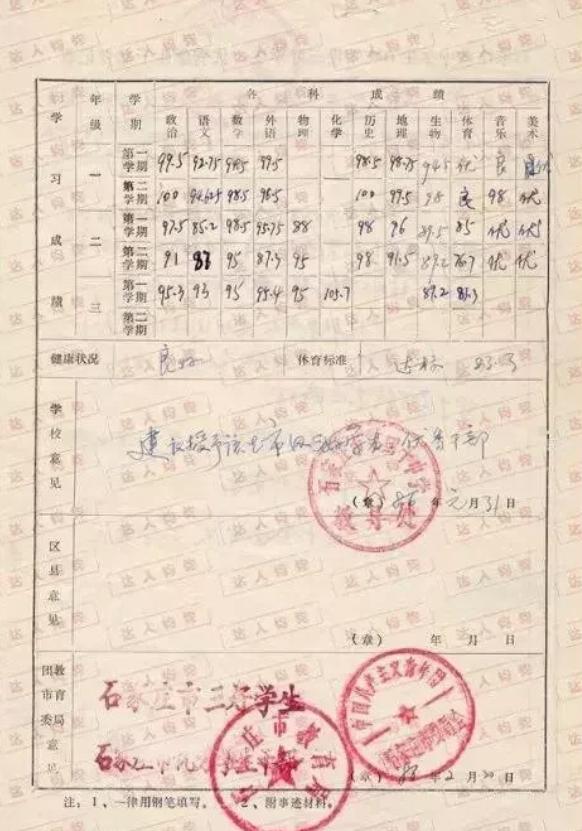 学习成绩 年级 学期 各科成绩
政治 语文 数学 外语 物理 化学 历史 地理 生物 体育 音乐 美术
一 第一学期 99.5 92.75 99.5 98.5 98.75 94.5 优 良
第二学期 100 94.625 98.5 96.5 100 99.5 98 良 98 优
二 第一学期 97.5 85.2 98.5 95.75 88 98 96 89.5 85 优 优
第二学期 91 87 95 87.3 95 98 91.5 89.2 76.7 优 优
三 第一学期 95.3 93 95 95.4 95 105.7 87.2 83.3
第二学期
健康状况 良好 体育标准 达标 83.3
学校意见
建议授予该生市级三好学生、优秀干部
教导处
(章) 年元月31日
区县意见
(章) 年 月 日
团市委教育局意见
石家庄市三好学生
石家庄市教育局
中国共产主义青年团
(章) 88年2月20日
注:1、一律用钢笔填写。 2、附事迹材料。
达人钧亮